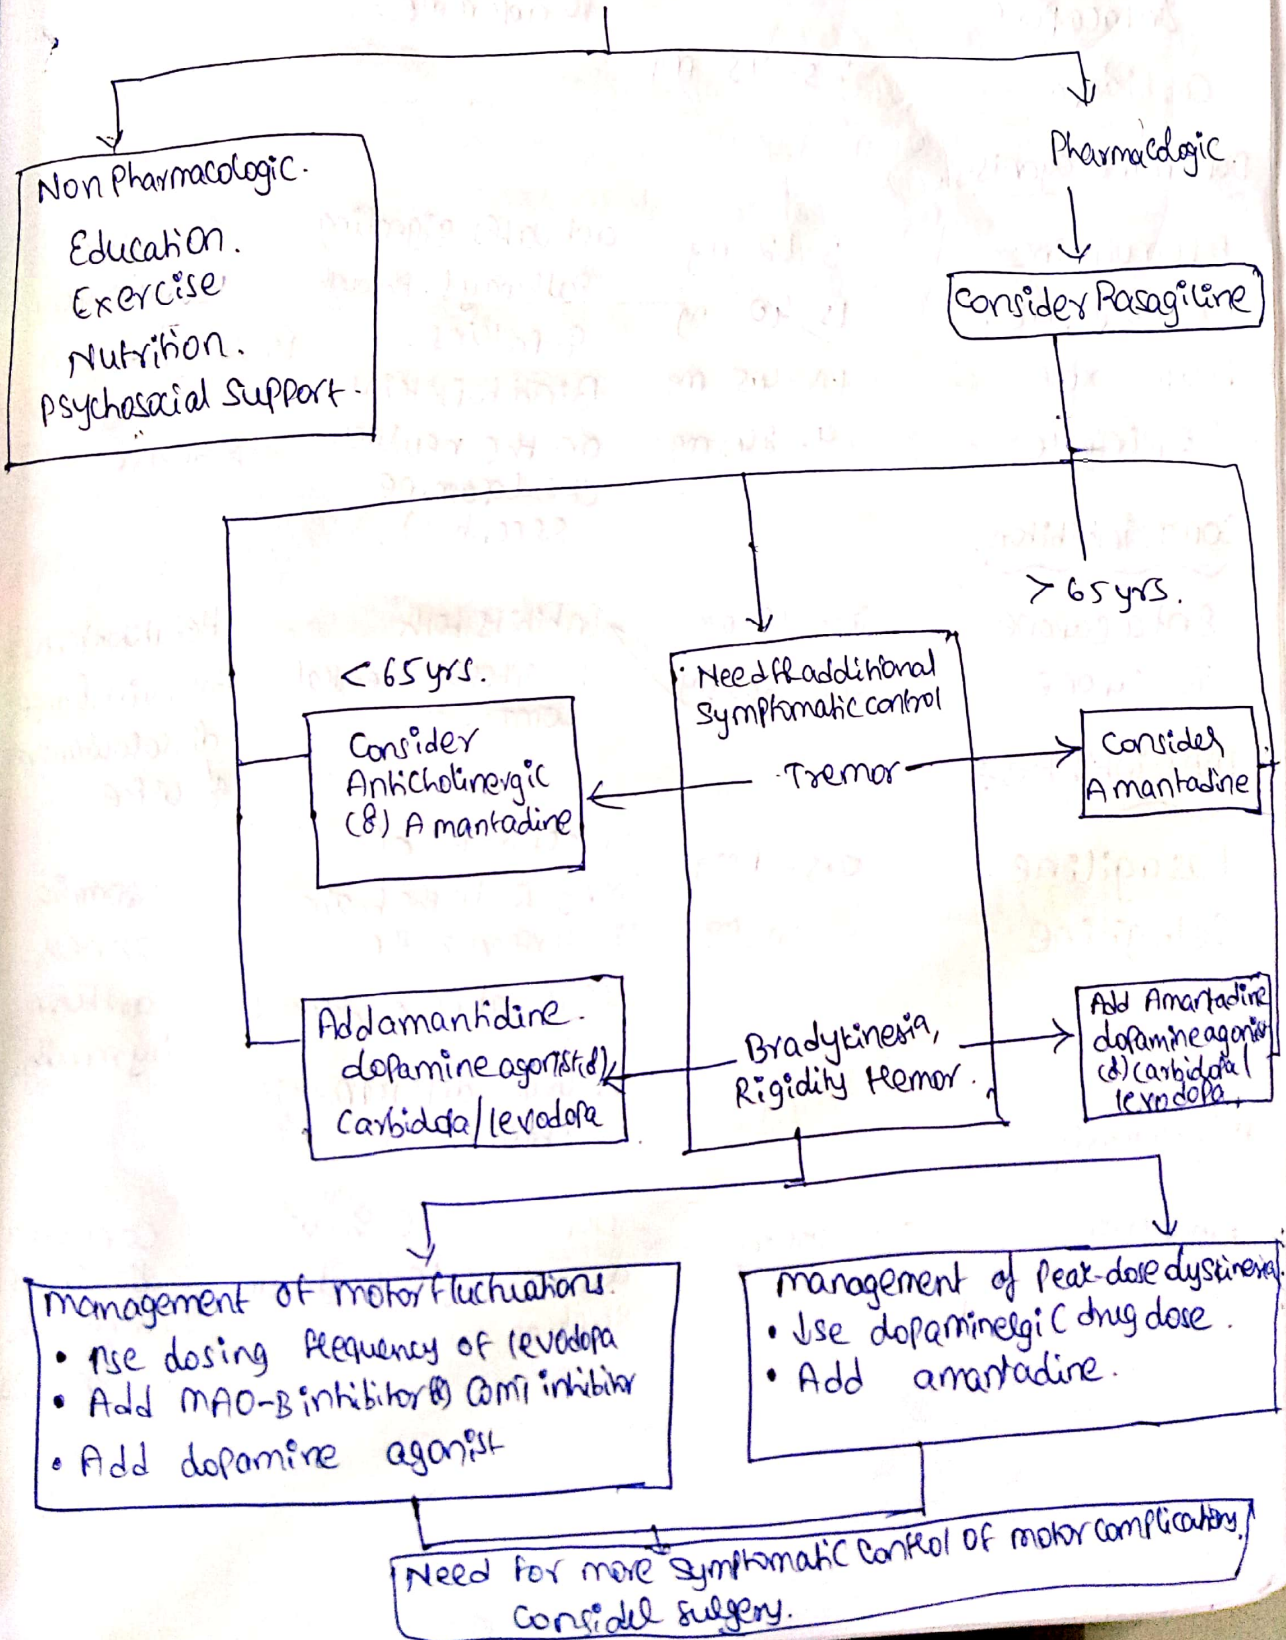 Non Pharmacologic.
Education.
Exercise
Nutrition.
Psychosocial Support.
Pharmacologic
Consider Rasagiline
> 65 yrs.
< 65 yrs.
Consider
Anticholinergic
(8) Amantadine
Need for additional
symptomatic control
Tremor
Consider
Amantadine
Add amantidine.
dopamine agonist (8)
Carbidopa/levodopa
Bradykinesia,
Rigidity tremor.
Add Amantadine
dopamine agonist
(8) Carbidopa/
levodopa
Management of motor fluctuations.
• ↑se dosing frequency of levodopa
• Add MAO-B inhibitor (8) COMT inhibitor
• Add dopamine agonist
Management of Peak-dose dyskinesia.
• ↓se dopaminergic drug dose.
• Add amantadine.
Need for more symptomatic control of motor complications,
Consider surgery.